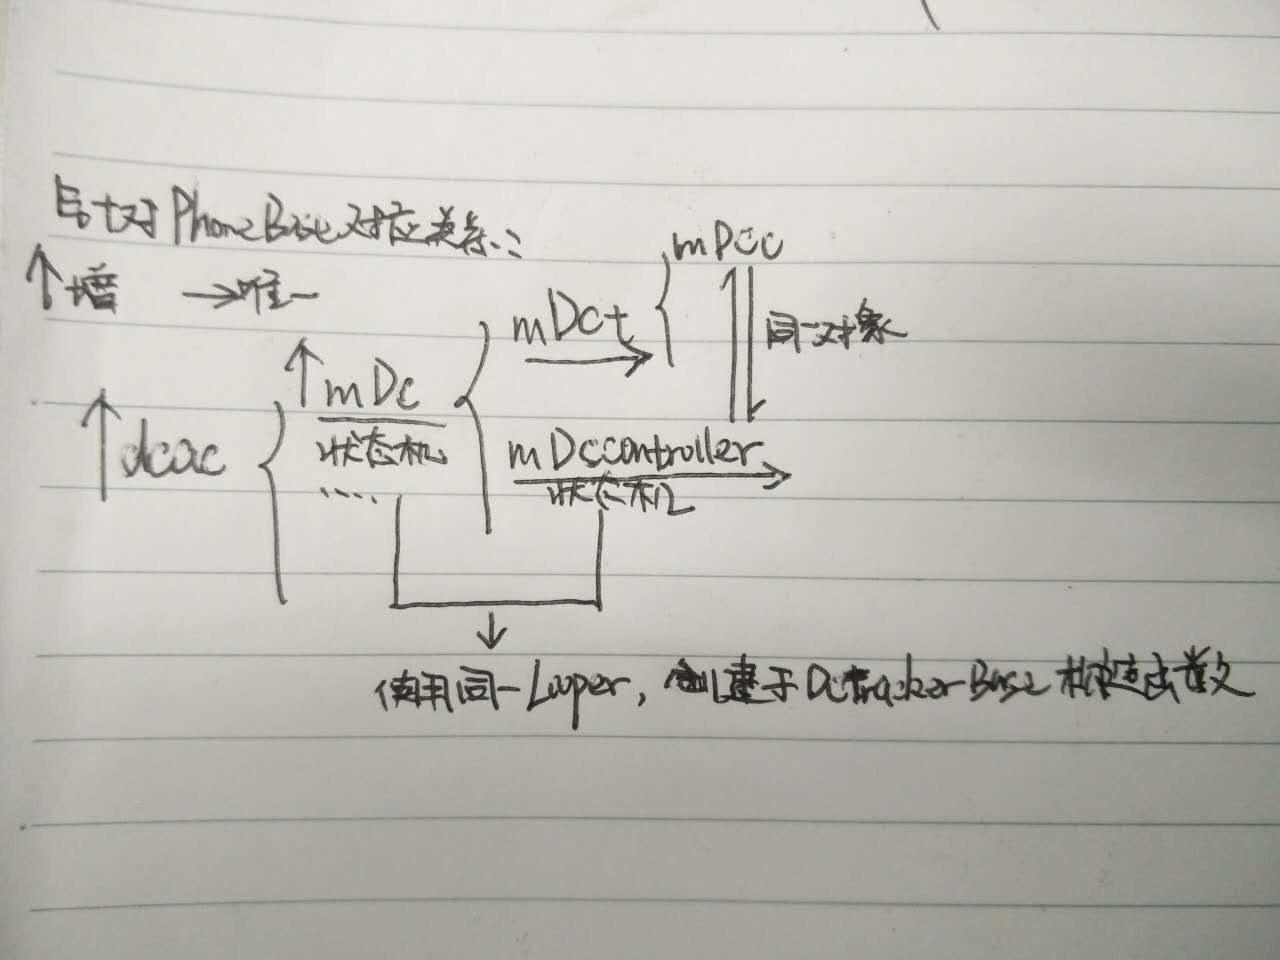 与 PhoneBase对应关系::
↑增 →唯一
mDcc
mDct
同一对象
↑mDc
↑dcac
状态机
mDccontroller
....
状态机
使用同一Looper, 创建于DctrackerBase 构造函数